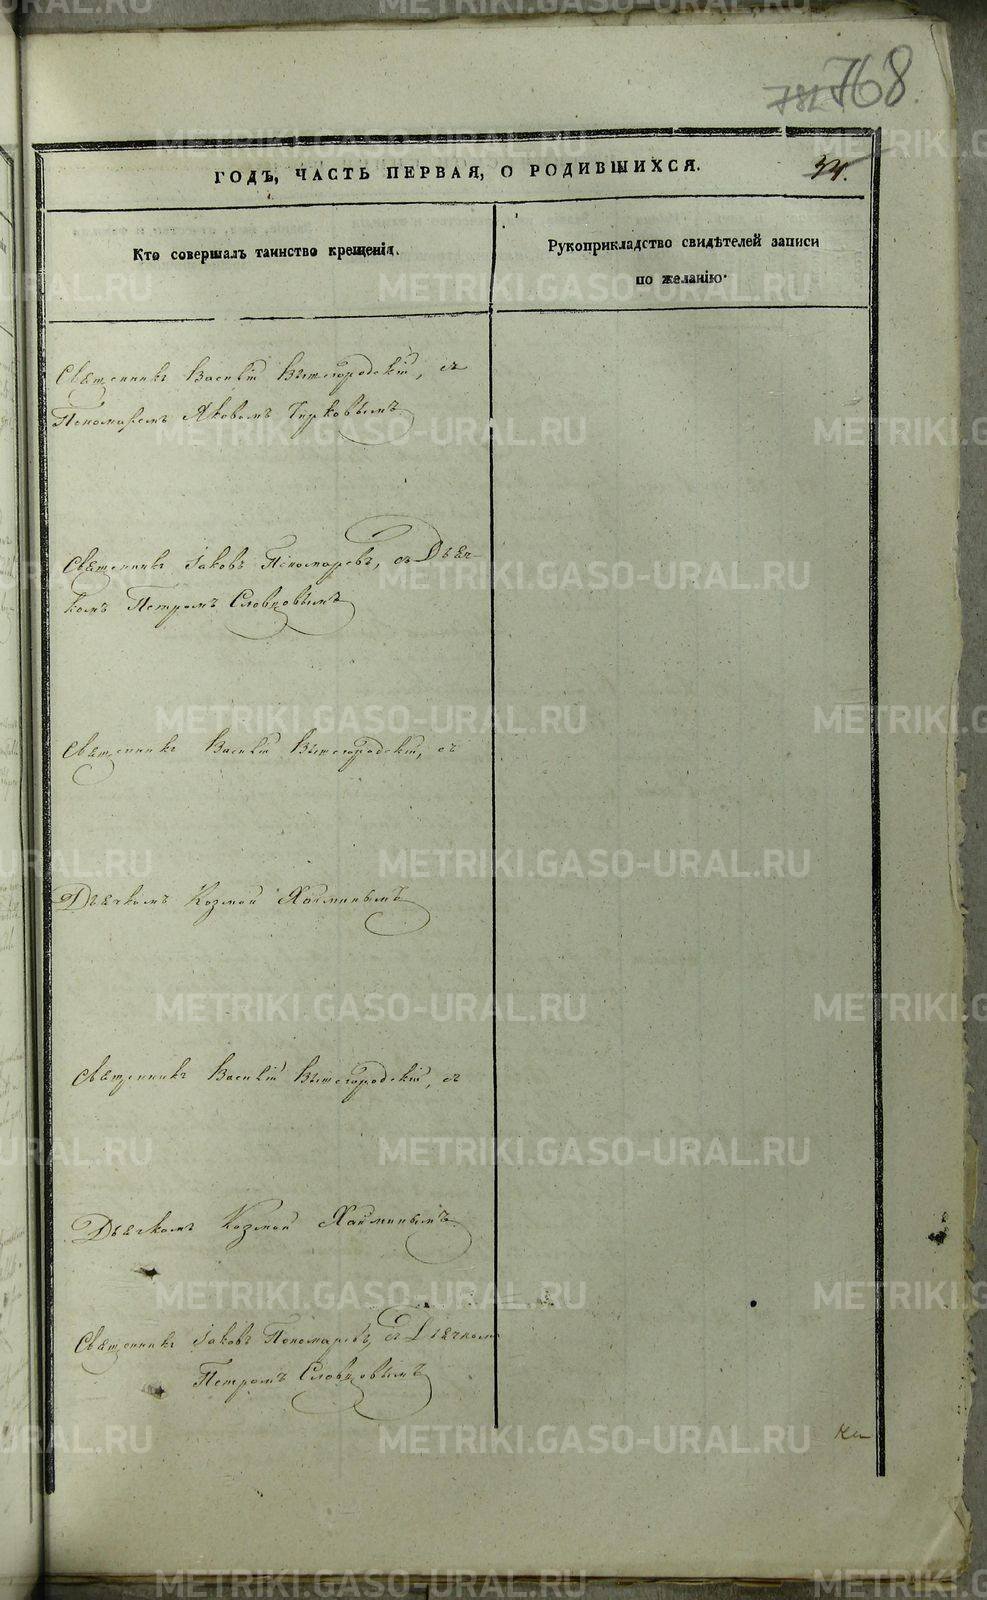 768
ГОДЪ, ЧАСТЬ ПЕРВАЯ, О РОДИВШИХСЯ.
Кто совершалъ таинство крещенія.
Рукоприкладство свидѣтелей записи
по желанію·
Священникъ Василій Вышегородскій, съ
Пономаремъ Яковомъ Чирковымъ
Священникъ Іаковъ Пономаревъ, съ Дьяч-
комъ Петромъ Словцовымъ
Священникъ Василій Вышегородскій, съ
Дьячкомъ Козмой Хайминымъ
Священникъ Василій Вышегородскій, съ
Дьячкомъ Козмой Хайминымъ
Священникъ Іаковъ Пономаревъ, съ Дьячкомъ
Петромъ Словцовымъ
METRIKI.GASO-URAL.RU